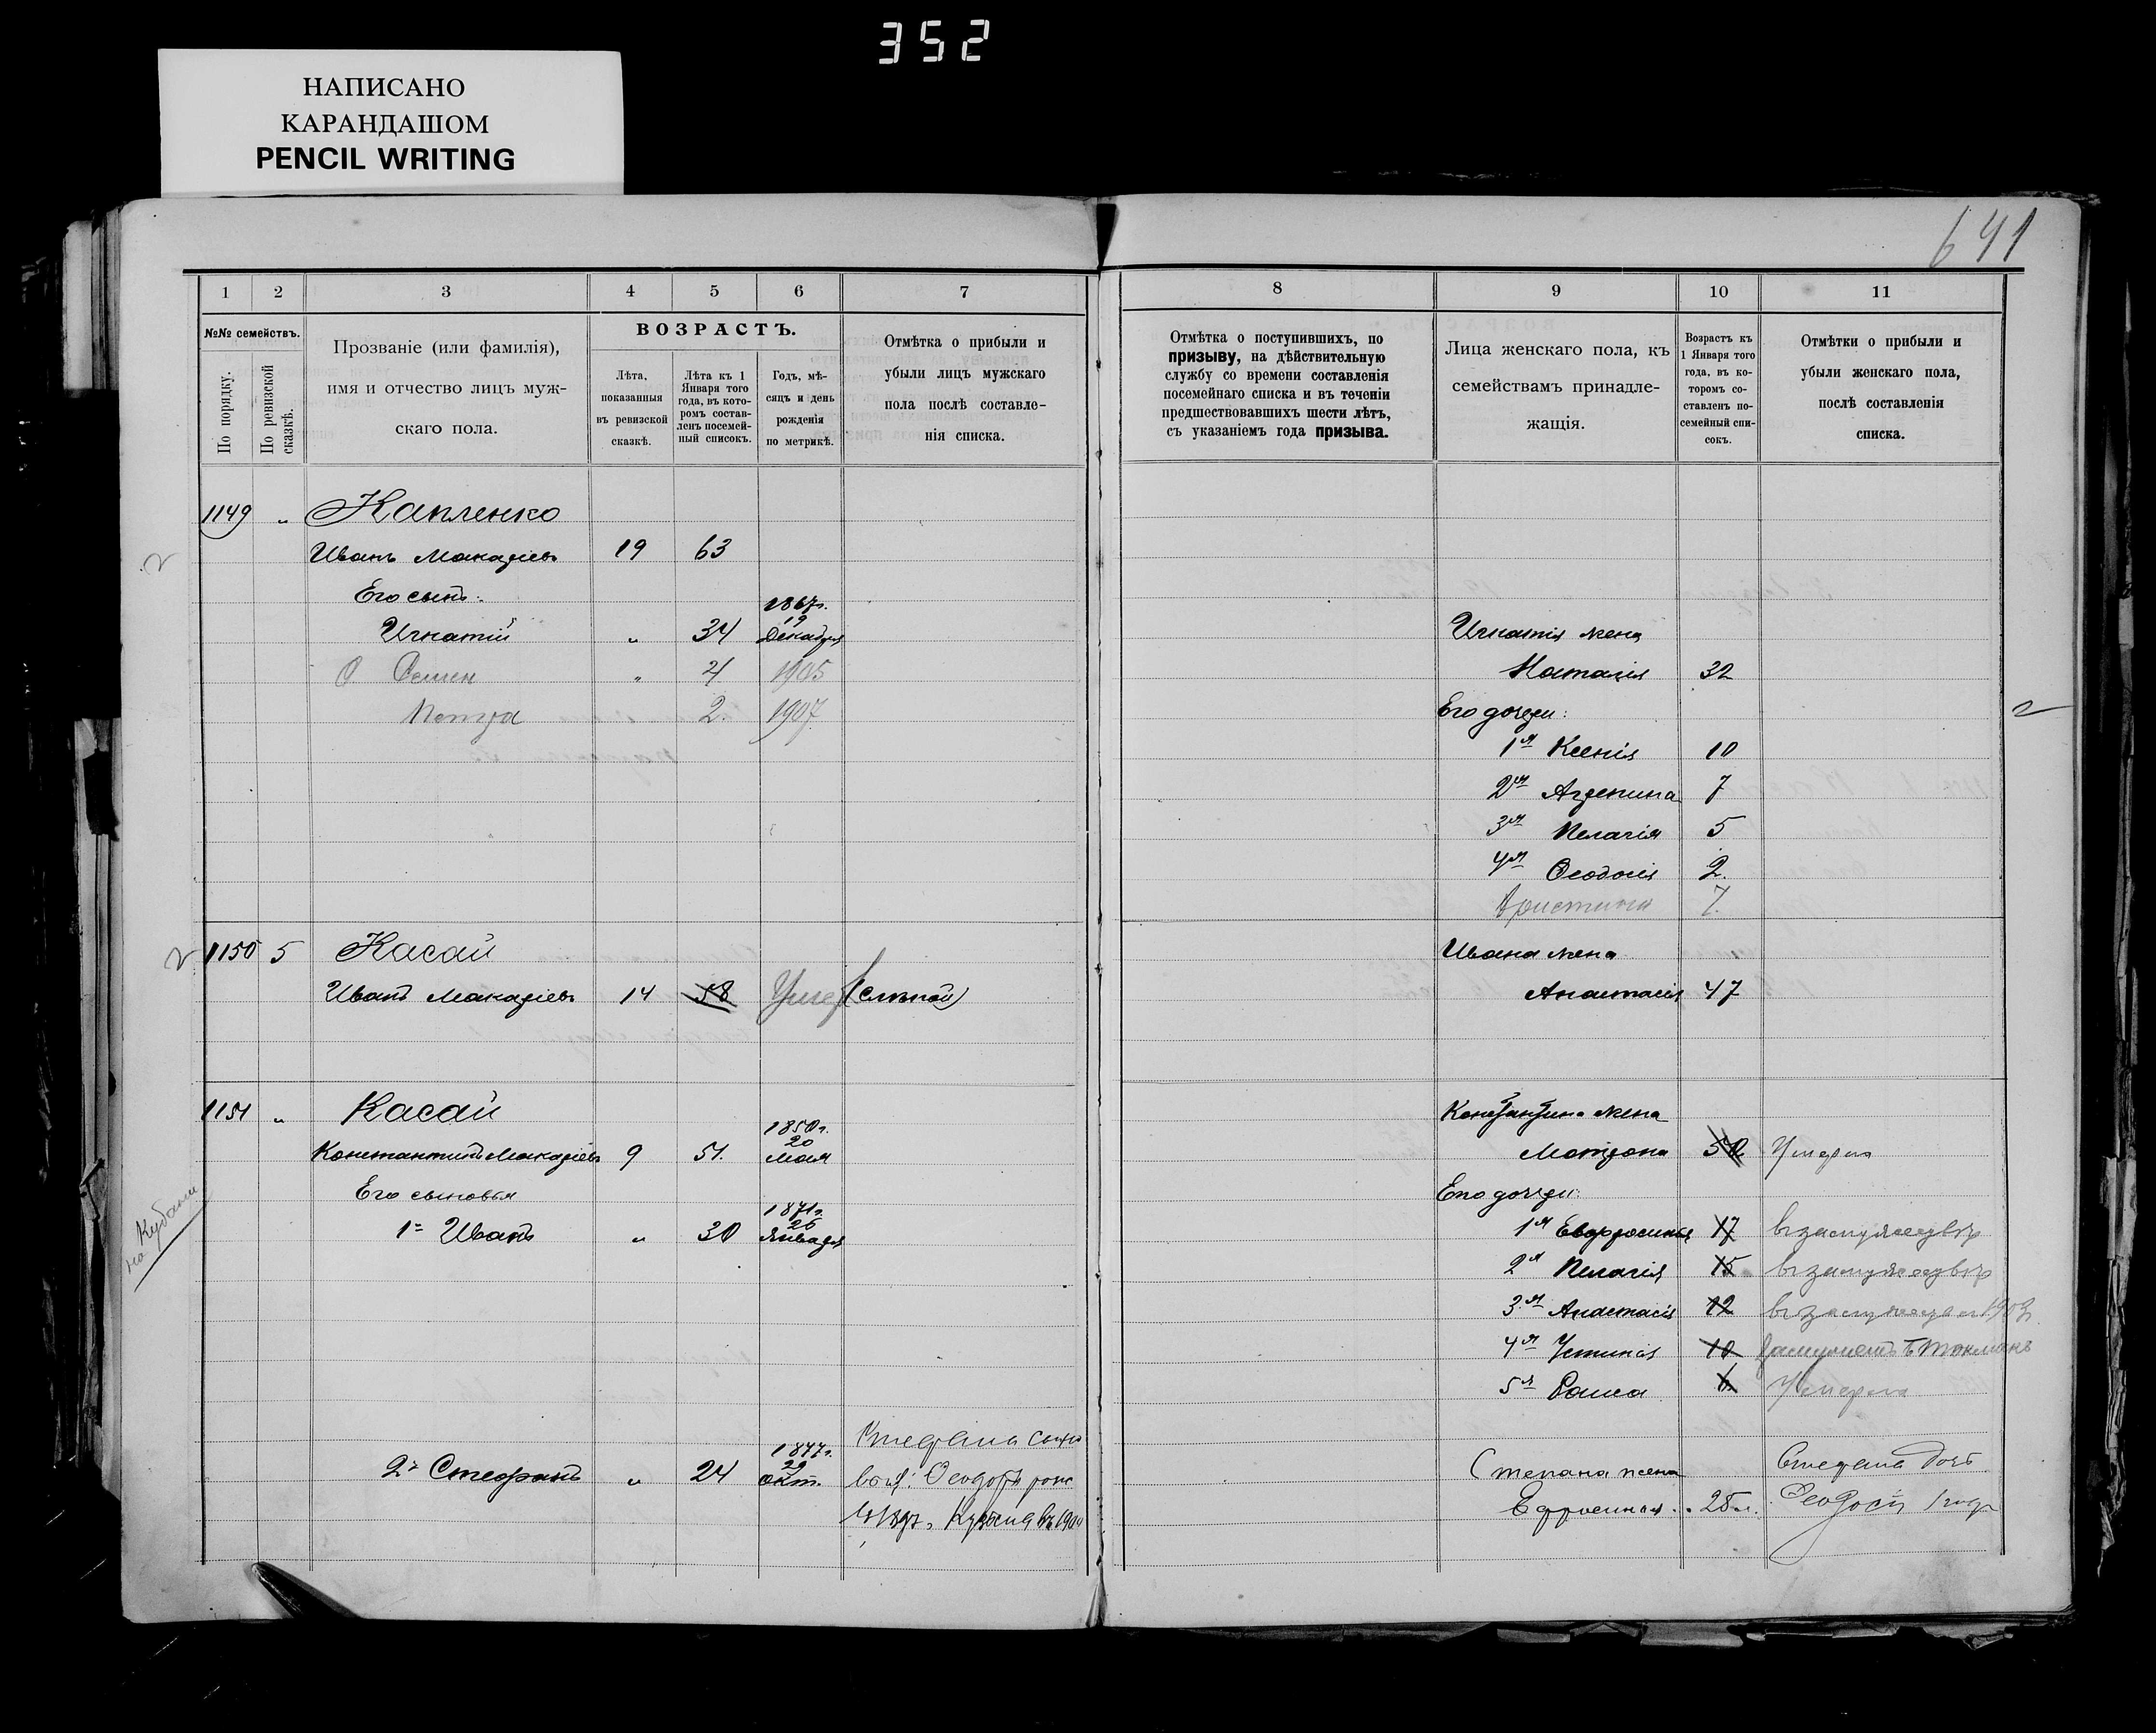 352
НАПИСАНО
КАРАНДАШОМ
PENCIL WRITING
641
1 2 3 4 5 6 7
№№ семействъ.
По порядку.
По ревизской сказкѣ.
Прозваніе (или фамилія),
имя и отчество лицъ муж-
скаго пола.
ВОЗРАСТЪ.
Лѣта,
показанныя
въ ревизской
сказкѣ.
Лѣта къ 1
Января того
года, въ кото-
ромъ состав-
ленъ посемей-
ный списокъ.
Годъ, мѣ-
сяцъ и день
рожденія
по метрикѣ.
Отмѣтка о прибыли и
убыли лицъ мужскаго
пола послѣ составле-
нія списка.
1149 „ Капленко
Иванъ Макаріевъ 19 63
2
Его сынъ:
1867г.
19
Игнатій „ 34 Декабря
Семен „ 4 1905
Петра 2. 1907
2 1150 5 Касай
Иванъ Макаріевъ 14 58 Умер (слѣпой)
1151 „ Касай
1850г.
20
Константинъ Макаріевъ 9 51. Мая
Его сыновья
1871г.
26
1й Иванъ „ 30 Января
на Кубани
Стефана сыно
1877г.
29
2й Стефанъ „ 24 Окт.
вья: Феодоръ
въ 190
8 9 10 11
Отмѣтка о поступившихъ, по
призыву, на дѣйствительную
службу со времени составленія
посемейнаго списка и въ теченіи
предшествовавшихъ шести лѣтъ,
съ указаніемъ года призыва.
Лица женскаго пола, къ
семействамъ принадле-
жащія.
Возрастъ къ
1 Января того
года, въ ко-
торомъ со-
ставленъ по-
семейный спи-
сокъ.
Отмѣтки о прибыли и
убыли женскаго пола,
послѣ составленія
списка.
Игнатія жена
Наталія 32
Его дочери: 2
1я Ксенія 10
2я Агрепина 7
3я Пелагія 5
4я Феодосія 2.
Христина 7.
Ивана жена
Анастасія 47
Константина жена
Матрона 50 Умерла
Его дочери:
1я Евфросинья 17 въ замужествѣ
2я Пелагія 15 въ замужествѣ
3я Анастасія 12 въ замуже 1909
4я Устинія 10 Замужемъ
5я Раиса 6 Умерла
Степана жена Стефана дочь
Ефросинья 25 л. Феодосія 1 год